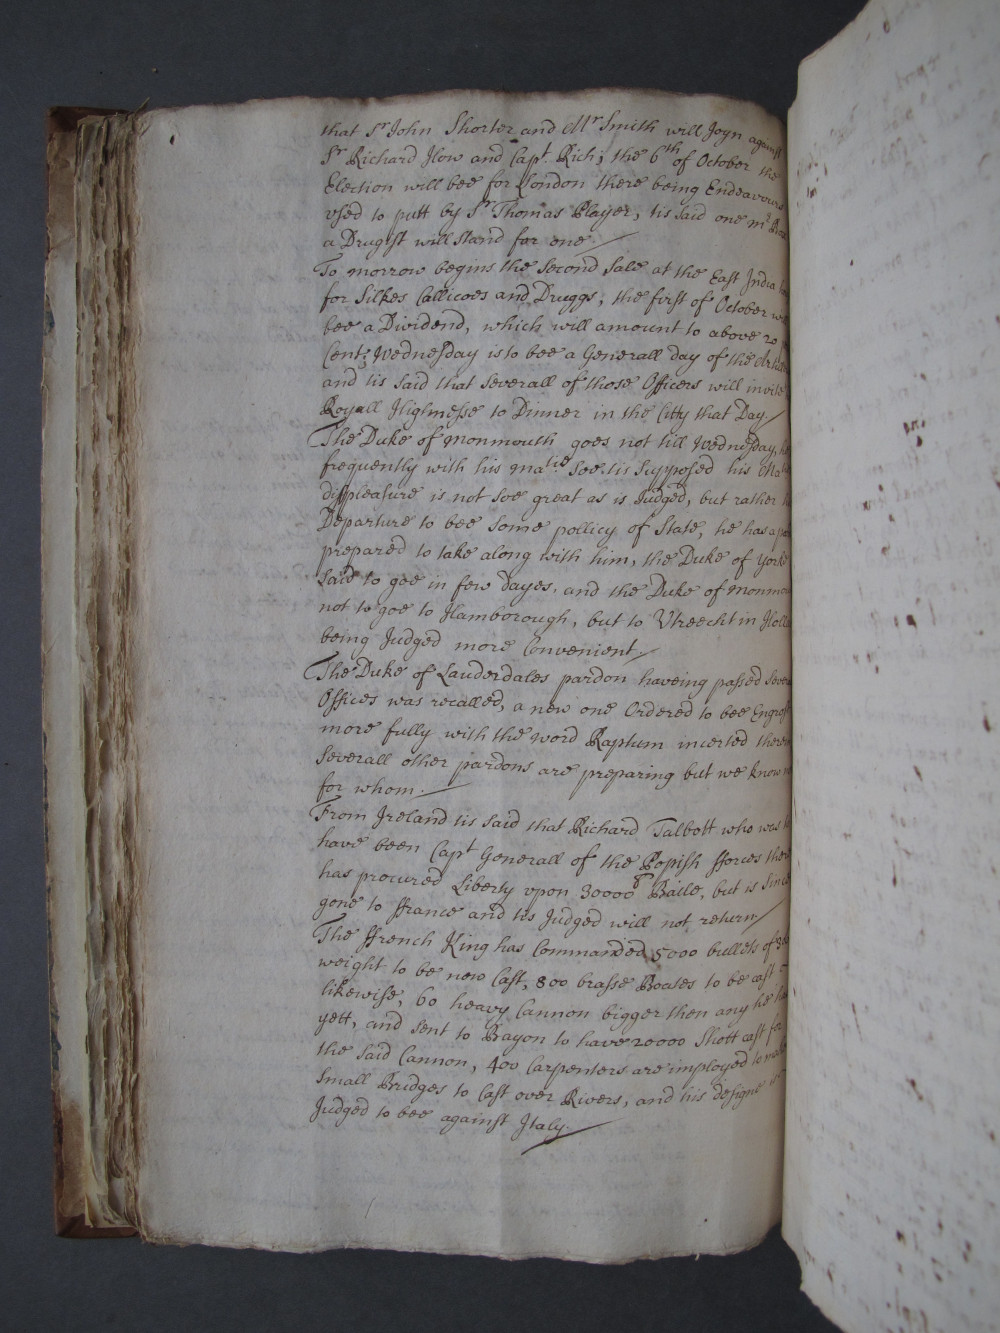 that Sr John Shorter and Mr Smith will Joyn against
Sr Richard How and Capt Rich; the 6th of October the
Election will bee for London there being Endeavours
vsed to putt by Sr Thomas Player, tis said one mr
a Drugist will stand for one
To morrow begins the Second Sale at the East India
for Silkes Callicoes and Druggs, the first of October will
bee a Dividend, which will amount to above 20
Cent; Wednesday is to bee a Generall day of the
and tis said that severall of those Officers will invite
Royall Highnesse to Dinner in the Citty that Day
The Duke of Monmouth goes not till Wednesday,
frequently with his matie soe tis Supposed his
displeasure is not soe great as is Judged, but rather
Departure to bee some pollicy of State, he has a
prepared to take along with him, the Duke of Yorke
said to goe in few dayes, and the Duke of
not to goe to Hamborough, but to Vtrecht in
being Judged more Convenient
The Duke of Lauderdales pardon haveing passed
Offices was recalled, a new one Ordered to bee
more fully with the word Raptum incerted
Severall other pardons are preparing but we know
for whom.
From Ireland tis said that Richard Talbott who was
have been Capt Generall of the Popish fforces
has procured Liberty vpon 30000 Baile, but is since
gone to ffrance and tis Judged will not return
The ffrench King has Commanded 5000 bullets of
weight to be new Cast, 800 brasse Boates to be cast
likewise, 60 heavy Cannon bigger then any he
yett, and sent to Bayon to have 20000 Shott cast for
the said Cannon, 400 Carpenters are imployed to
small Bridges to Cast over Rivers, and his designe
Judged to bee against Italy.